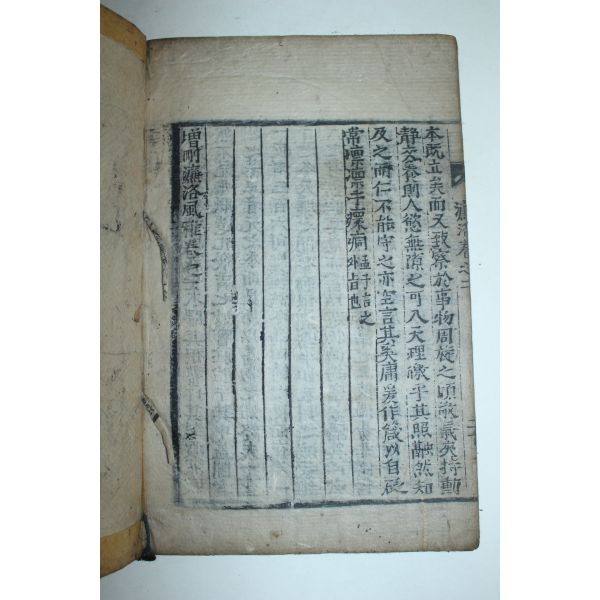 本旣立矣而又致察於事物周旋之頃敬義夾持動
靜交養則人慾無隙之可入天理皦乎其照融然知
及之而仁不能守之亦空言其奚庸爰作箴以自
常凜凜乎瘝痌
增刪濂洛風雅卷之二
濂洛卷之二